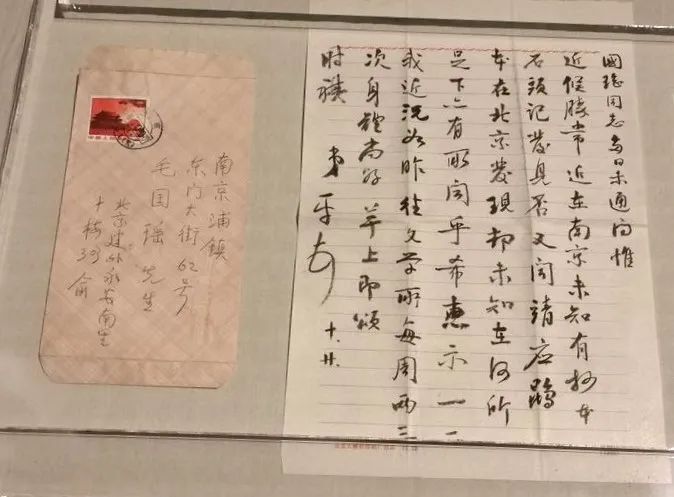 國瑤同志多日未通问惟
近候勝常近在南京未知有抄本
石頭记發見否又闻靖应鹍
本在北京發現却未知在何所
足下亦有所闻乎希惠示一二
我近况如昨往文学所每周两三
次身體尚好草上即颂
时祺 弟平
十.廿.
南京浦镇
东门大街62号
毛国瑶先生
北京建外永安南里
十楼3 俞